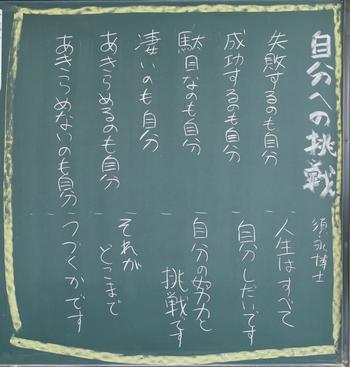 自分への挑戦
須永博士
失敗するのも自分
成功するのも自分
駄目なのも自分
凄いのも自分
あきらめるのも自分
あきらめないのも自分
人生はすべて
自分しだいです
自分の努力と
挑戦です
それが
どこまで
つづくかです